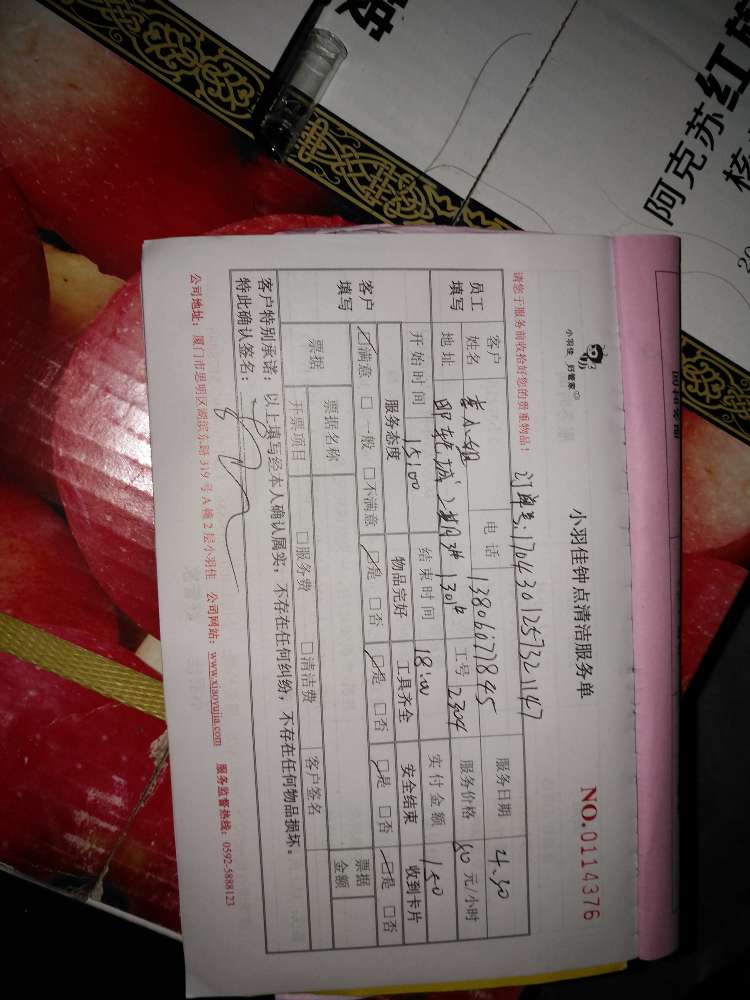 阿克苏红旗
核
小羽佳 好管家
小羽佳钟点清洁服务单
NO.0114376
请您于服务前收拾好您的贵重物品！
订单号:1704301257321147
员工填写
客户姓名 李小姐 电话 13806077845 服务日期 4.30
地址 1304 工号 2304 服务价格 50 元/小时
开始时间 15:00 结束时间 18:00 实付金额 150
客户填写
服务态度 物品完好 工具齐全 安全结束 收到卡片
☑满意 □一般 □不满意 ☑是 □否 ☑是 □否 ☑是 □否 ☑是 □否
票据 票据名称 票据金额
开票项目 □服务费 □清洁费 客户签名
客户特别承诺：以上填写经本人确认属实，不存在任何纠纷，不存在任何物品损坏。
特此确认签名：
公司地址：厦门市思明区湖滨东路 319 号 A 幢 2 层小羽佳 公司网站：www.xiaoyujia.com 服务监督热线：0592-5888123